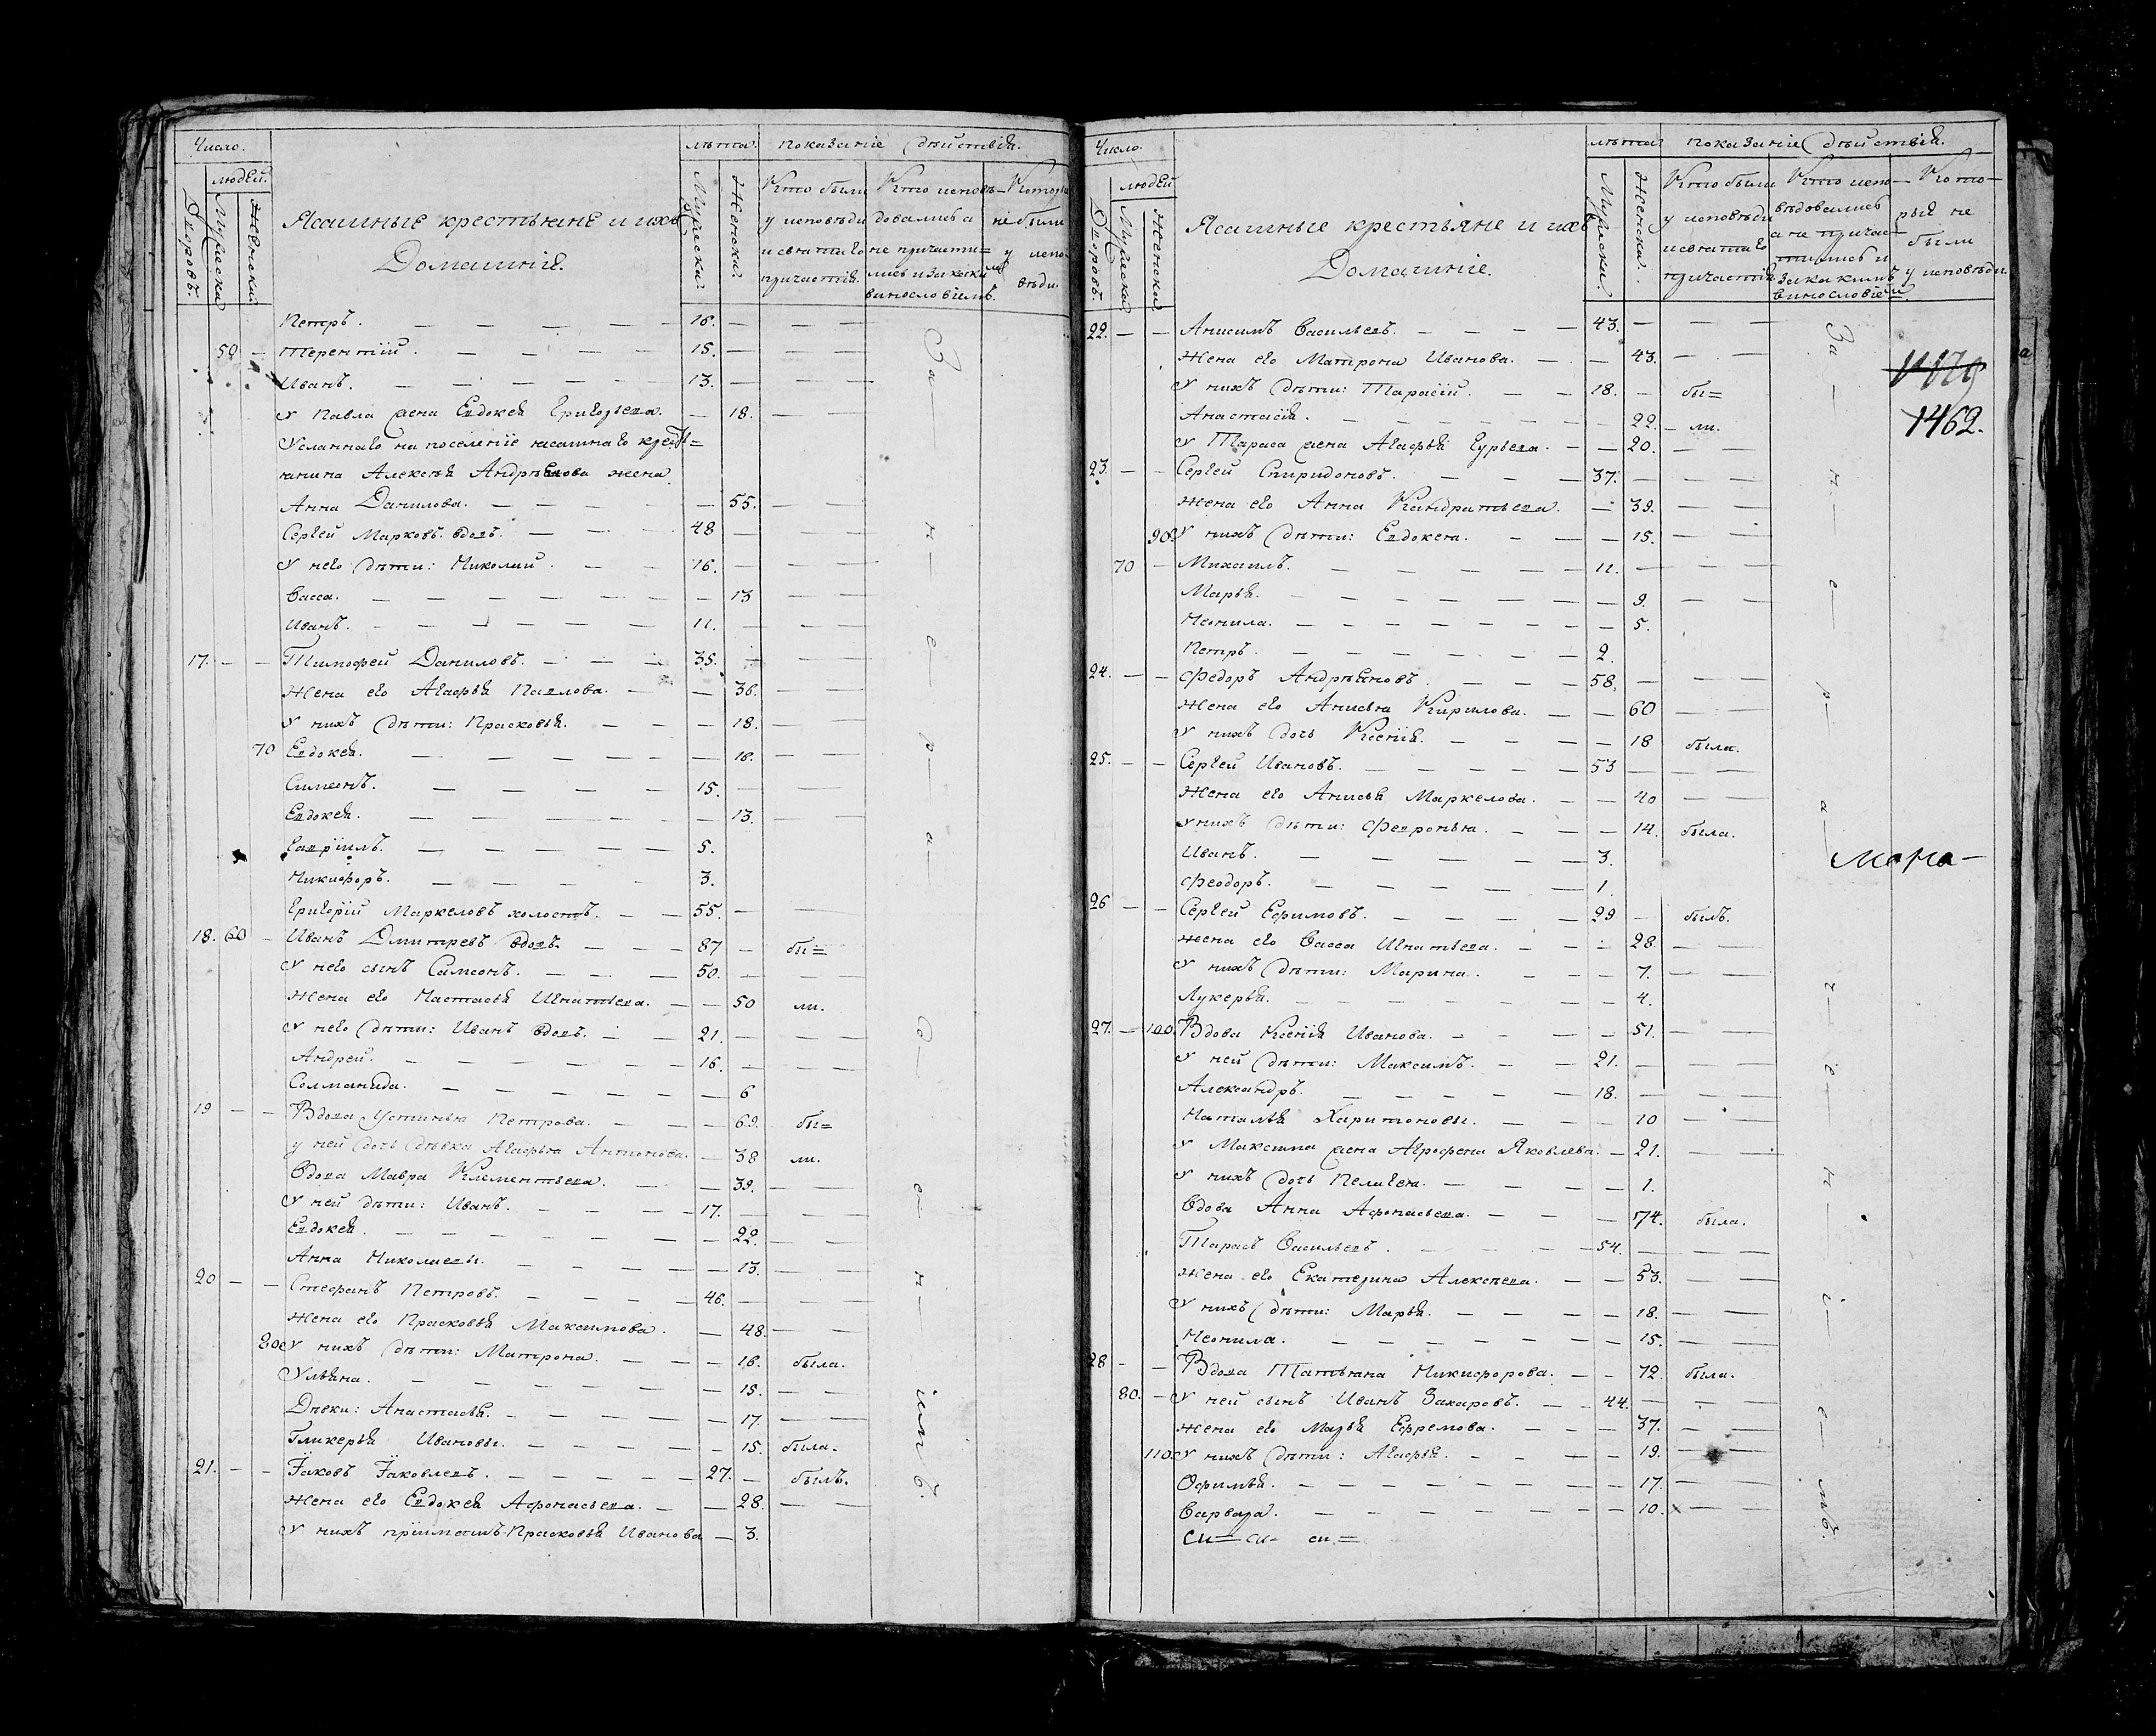 Число.
людей.
Дворовъ.
Мужеска
Женский
Ясашные крестьяне и ихъ
Домашнія.
лѣта.
Мужеска.
Женска.
показаніе дѣйствія.
Кто были
у исповѣди
и святаго
причастія.
Кто исповѣ-
довались а
не причасти=
лись и за каким
винословіемъ.
Которы
не были
у испо-
вѣди.
Петръ. 16.
50 Терентій. 15.
Иванъ. 13.
У Павла жена Евдокея Григорьева. 18.
Усланнаго на поселеніе ясашнаго кресть=
янина Алексѣя Андрѣянова жена
Анна Данилова. 55.
Сергей Марковъ вдовъ. 48
У него дѣти: Николай. 16.
Васса. 13
Иванъ. 11.
17. Тимофей Даниловъ. 35.
Жена его Агафья Павлова. 36.
У нихъ дѣти: Прасковья. 18.
70 Евдокея. 16.
Симеонъ. 15.
Евдокея. 13.
Гаврiилъ. 5.
Никифоръ. 3.
Григорій Маркеловъ холостъ. 55.
18. 60 Иванъ Дмитревъ вдовъ. 87 бы=
У него сынъ Самсонъ. 50.
Жена его Настасья Игнатьева. 50 ли.
У него дѣти: Иванъ вдовъ. 21.
Андрей. 16.
Соломанида. 6
19 Вдова Устинья Петрова. 69. бы=
у ней дочь дѣвка Агафья Антонова. 38 ли.
Вдова Мавра Клементьева. 39.
У ней дѣти: Иванъ. 17.
Евдокея. 22.
Анна Николаевы. 13.
20 Стефанъ Петровъ. 46.
Жена его Прасковья Максимова. 48.
80 У нихъ дѣти: Матрона. 16. была.
Ульяна. 15.
Дѣвки: Анастасья. 17.
Гликерья Ивановы. 15. была.
21. Яковъ Яковлевъ. 27. былъ.
Жена его Евдокея Афонасьева. 28.
У нихъ пріимышъ Прасковья Иванова 3.
За-
н-
е-
р-
а-
с-
н-
iимъ.
Число.
людей
Дворовъ.
Мужеска
Женска
Ясашные крестьяне и ихъ
Домашніе.
лѣта
Мужеска.
Женска.
показаніе дѣйствія.
Кто были
у исповѣди
и святаго
причастія.
Кто испо-
вѣдовались
а не причас-
тились и
за какимъ
винословіемъ
Кото-
рыя не
были
у исповѣди.
22. Анисимъ Васильевъ. 43.
Жена его Матрона Иванова. 43.
У нихъ дѣти: Тарасій. 18. бы=
Анастасія. 22. ли.
У Тараса жена Агафья Гурьева. 20.
23. Сергей Спиридоновъ. 37.
Жена его Анна Кандратьева. 39.
90. У нихъ дѣти: Евдокея. 15.
70 Михаилъ. 11.
Марья. 9.
Неонила. 5.
Петръ. 2.
24. Федоръ Андрѣяновъ. 58.
Жена его Анисья Кирилова. 60
У нихъ дочь Ксенія. 18 была.
25. Сергей Ивановъ. 53
Жена его Анисья Маркелова. 40
У нихъ дѣти: Февронья. 14. была.
Иванъ. 3.
Феодоръ. 1.
26 Сергей Ефимовъ. 29 былъ.
Жена его Васса Игнатьева. 28.
У нихъ дѣти: Марина. 7.
Лукерья. 4.
27. 100. Вдова Ксенія Иванова. 51.
У ней дѣти: Максимъ. 21.
Александръ. 18.
Наталья Харитоновы. 10
У Максима жена Агрофена Яковлева. 21.
У нихъ дочь Пелагея. 1.
Вдова Анна Афонасьева. 74. была.
Тарасъ Васильевъ. 54.
Жена его Екатерина Алексеева. 53.
У нихъ дѣти: Марья. 18.
Неонила. 15.
28 Вдова Татьяна Никифорова. 72. была.
80. У ней сынъ Иванъ Захаровъ. 44.
Жена его Марья Ефремова. 37.
110. У нихъ дѣти: Агафья. 19.
Офимья. 17.
Варвара. 10.
си= си- си=
За-
н-
е-
р-
а
1462.